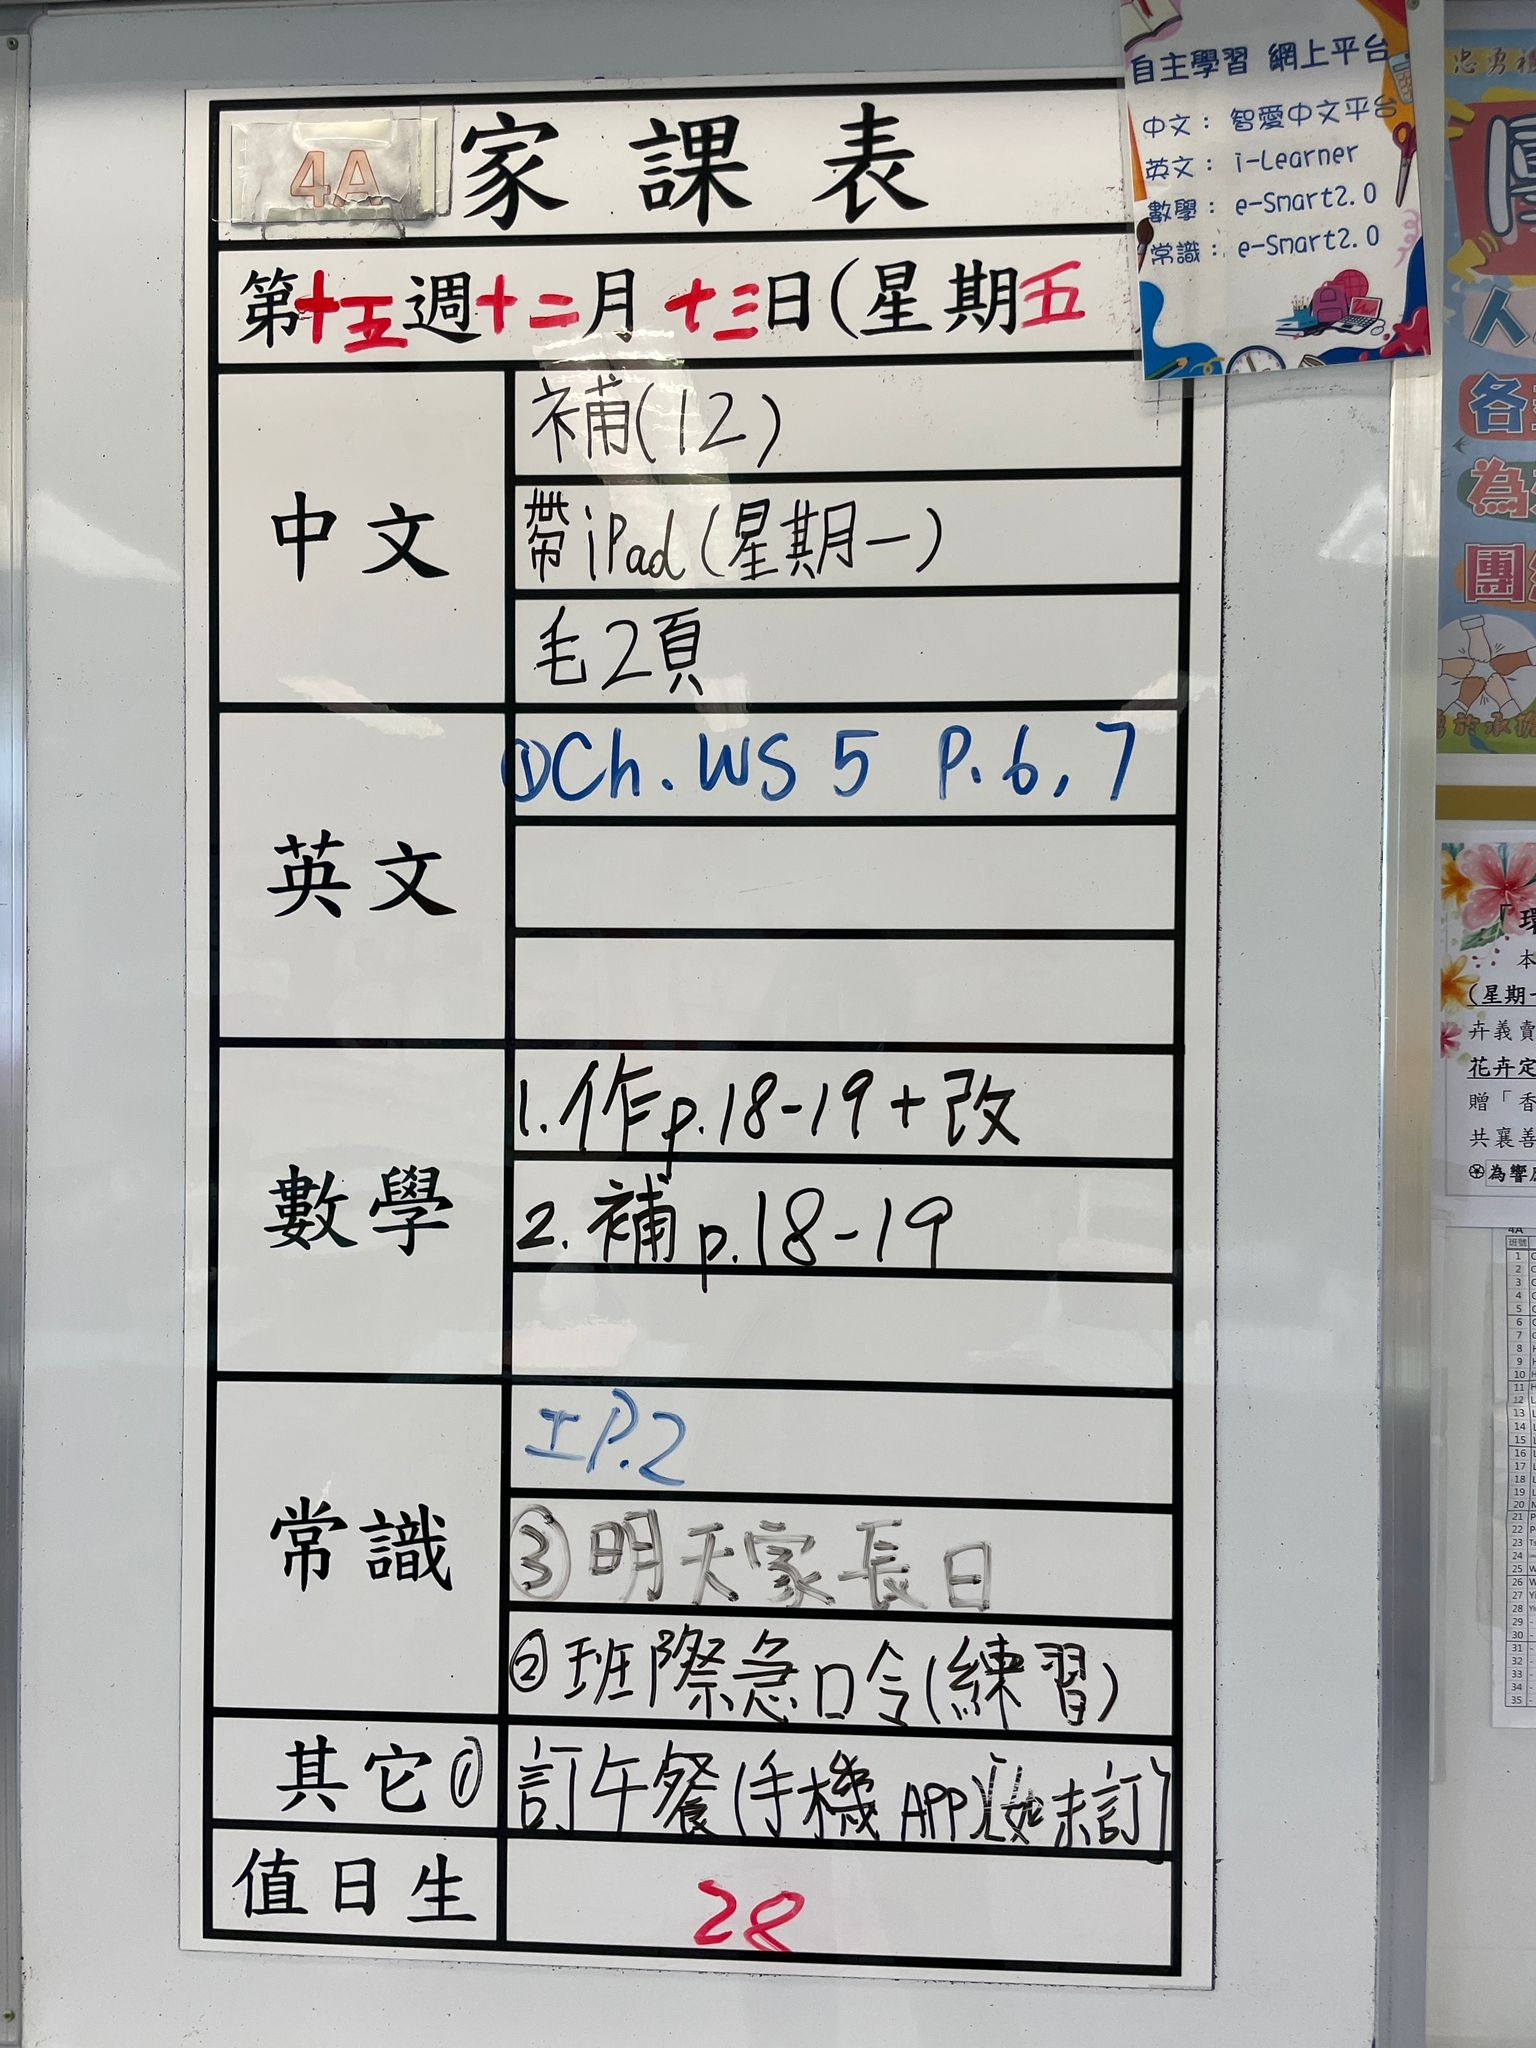 4A 家課表
第十五週十二月十三日(星期五
中文
補(12)
帶iPad(星期一)
毛2頁
英文
①Ch. WS 5 P.6,7
數學
1.作p.18-19+改
2.補p.18-19
常識
工P.2
③明天家長日
②班際急口令(練習)
其它①
訂午餐(手機APP)(如未訂)
值日生
28
自主學習 網上平台
中文：智愛中文平台
英文：i-Learner
數學：e-Smart2.0
常識：e-Smart2.0
忠勇
人
各
為
團
「環
本
(星期
卉義賣
花卉定
贈「香
共襄善
為響
4A
班號
1
2
3
4
5
6
7
8
9
10
11
12
13
14
15
16
17
18
19
20
21
22
23
24
25
26
27
28
29
30
31
32
33
34
35